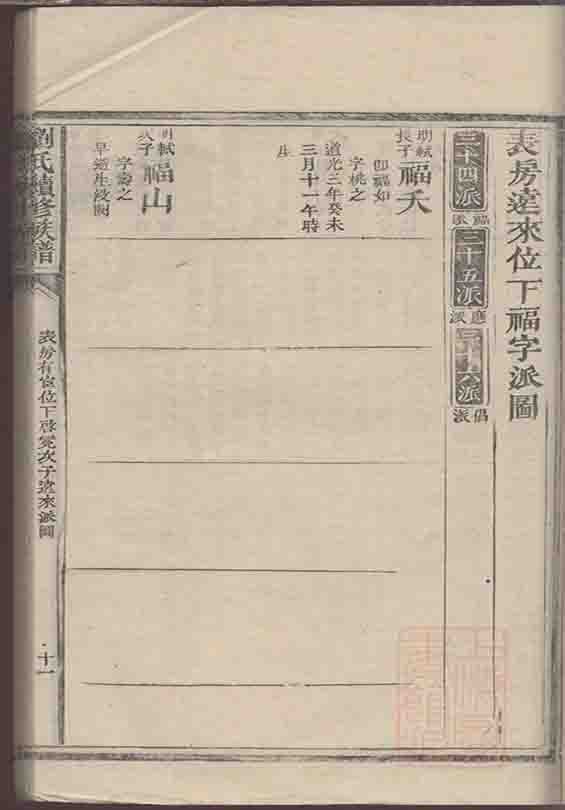 表房遠來位下福字派圖
三十四派
福派
三十五派
應派
三十六派
倡派
明軾
長子
福夭
即福如
字桃之
道光三年癸未
三月十一午時
生
明軾
次子
福山
字壽之
早逝生歿闕
劉氏續修族譜
表房有宦位下啓
次子遠來派圖
十一